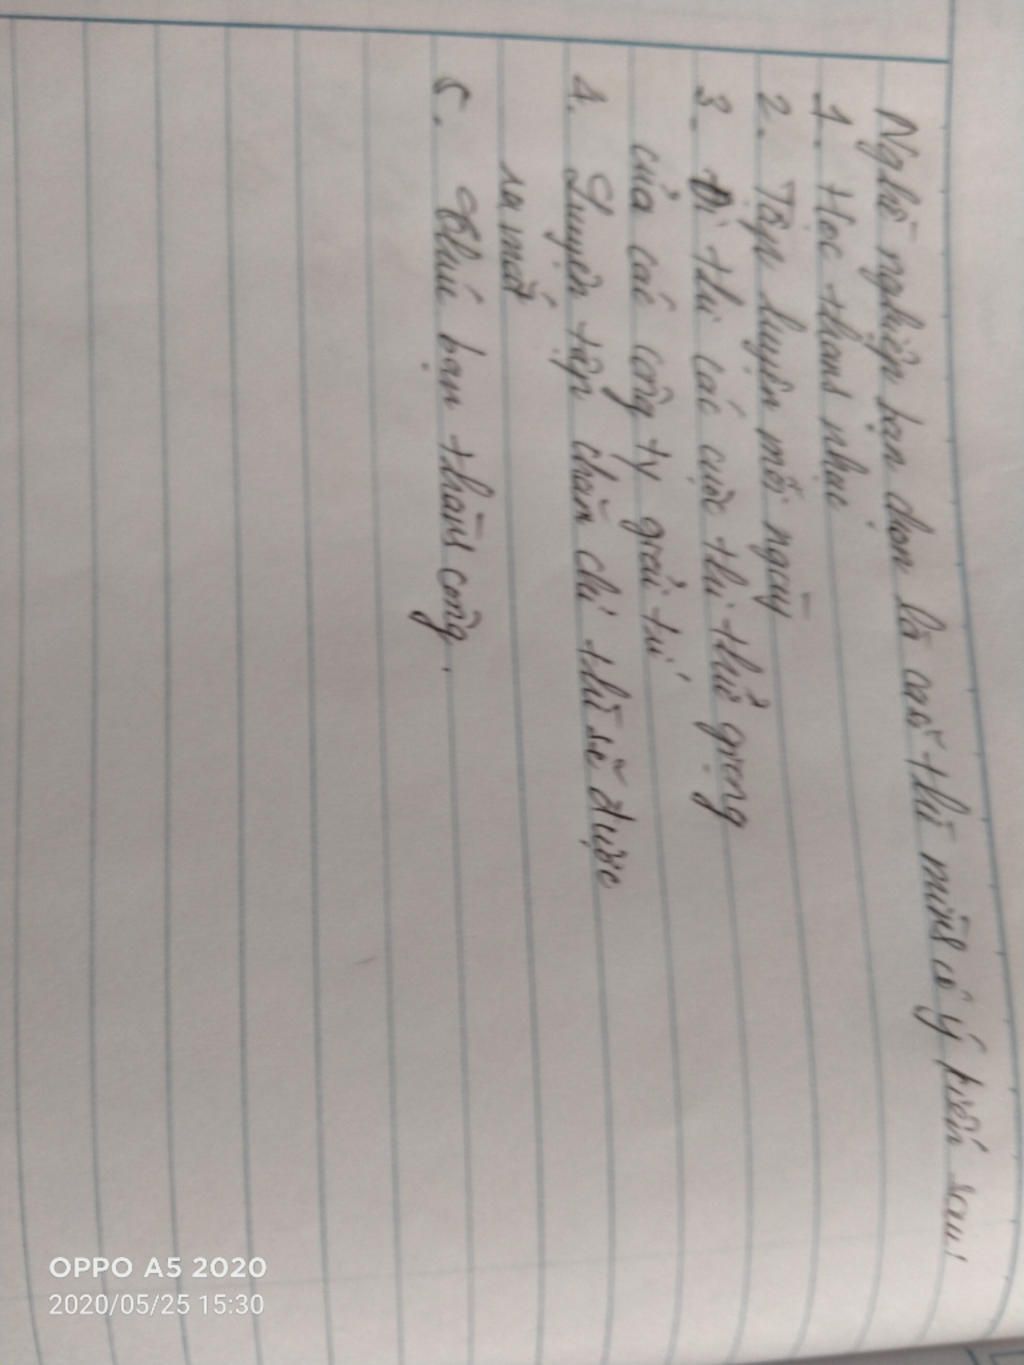 Nghề nghiệp bạn chọn là ca sĩ thì mình có ý kiến sau:
1. Học thanh nhạc
2. Tập luyện mỗi ngày
3. Đi thi các cuộc thi thử giọng
của các công ty giải trí
4. Luyện tập chăm chỉ thì sẽ được
ra mắt
5. Chúc bạn thành công.
OPPO A5 2020
2020/05/25 15:30